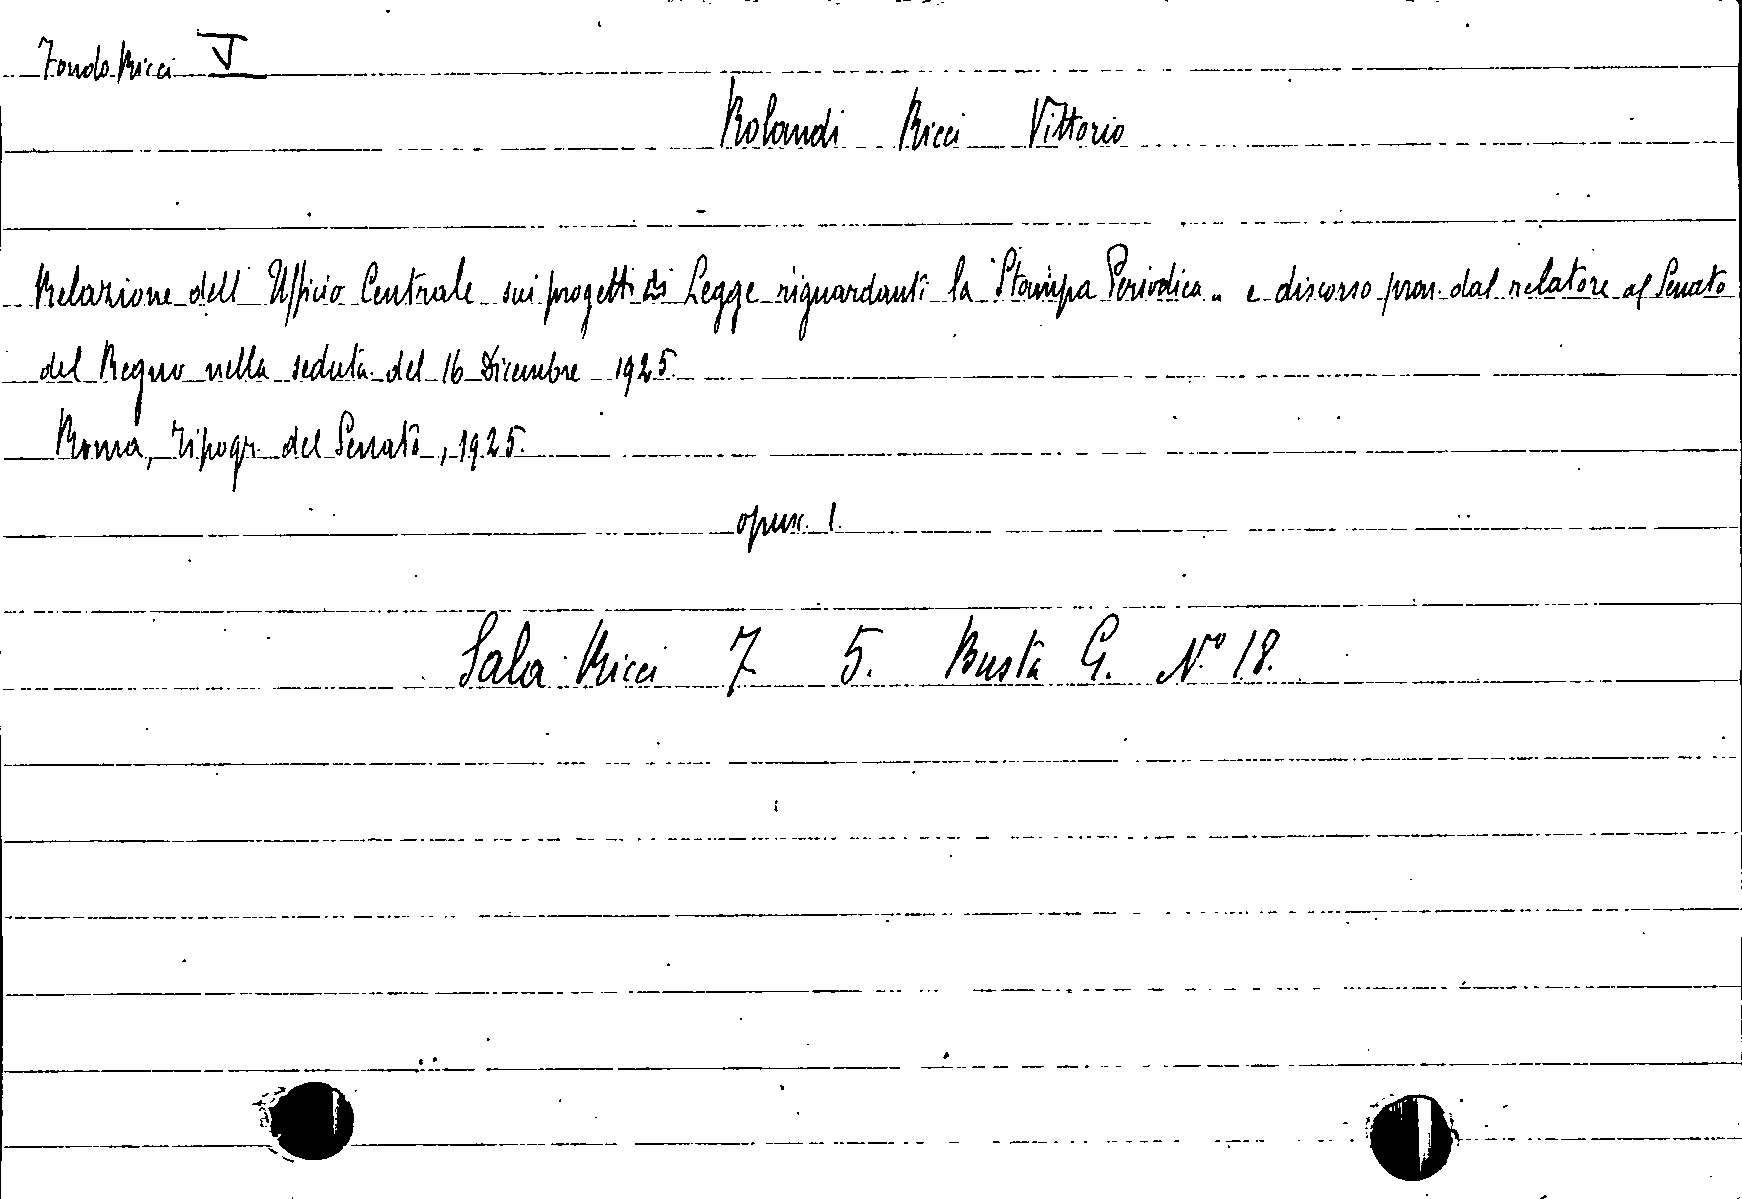 Fondo Ricci V
Rolandi Ricci Vittorio
Relazione dell' Ufficio Centrale sui progetti di Legge riguardanti la "Stampa Periodica" e discorso pron. dal relatore al Senato
del Regno nella seduta del 16 Dicembre 1925.
Roma, Tipogr. del Senato, 1925.
opusc. 1.
Sala Ricci 7 5. Busta G. N.º 18.